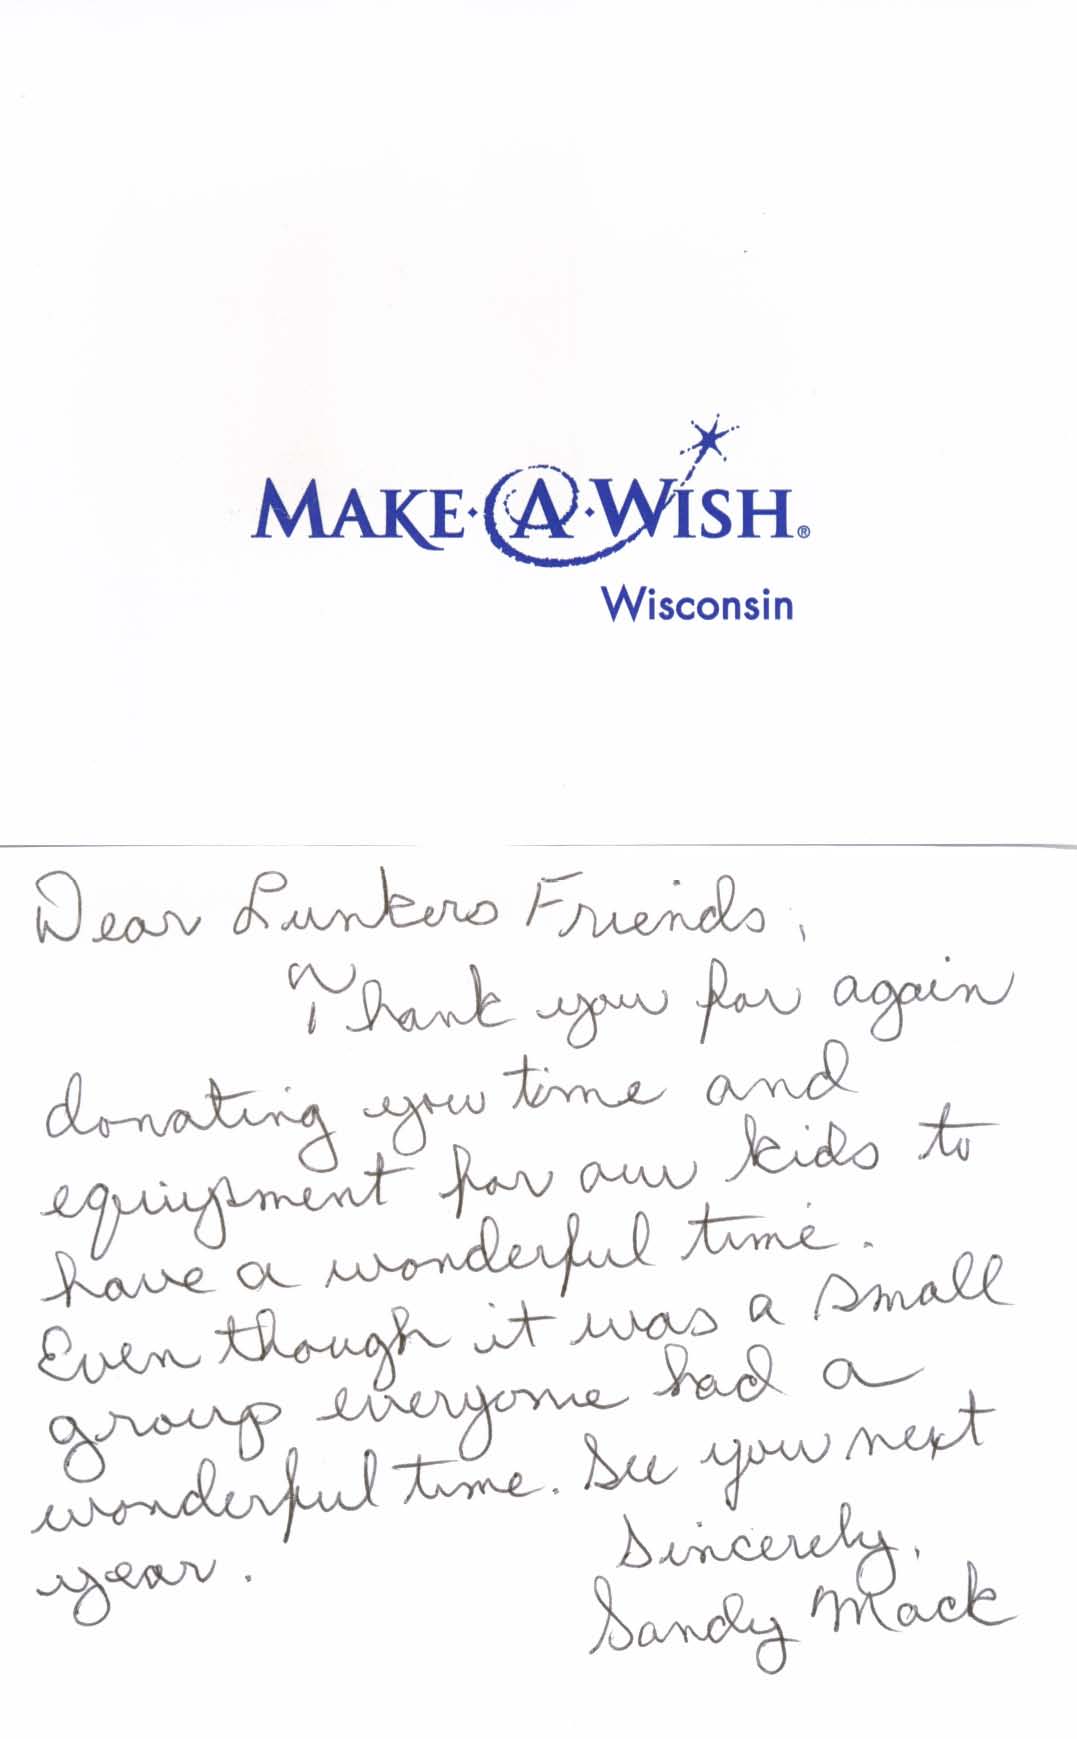 MAKE·A·WISH®
Wisconsin
Dear Lunkers Friends,
Thank you for again
donating your time and
equipment for our kids to
have a wonderful time.
Even though it was a small
group everyone had a
wonderful time. See you next
year.
Sincerely,
Sandy Mack